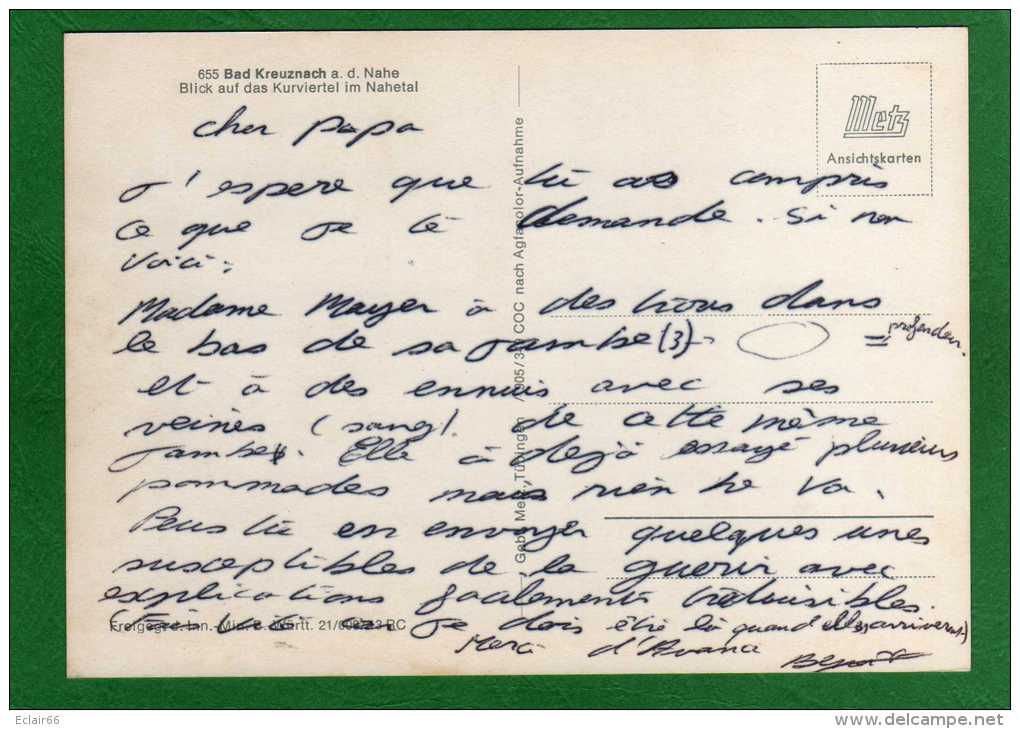 655 Bad Kreuznach a. d. Nahe
Blick auf das Kurviertel im Nahetal
Metz
Ansichtskarten
cher papa
J'espere que tu as compris
ce que je te demande. Si non
voici:
Madame Mayer à des trous dans
le bas de sa jambe (3)
= profondeur.
et à des ennuis avec ses
veines (sang). de cette même
jambe. Elle à dejà essayé plusieurs
pommades mais rien ne va.
Peus tu en envoyer quelques unes
susceptibles de la guerir avec
explications facilement traduisibles.
je dois être là quand elles arriveront)
Merci d'Avance
Freigeg. d. Inn.-Min. B. Württ.
Gebr. Metz, Tübingen
COC nach Agfacolor-Aufnahme
Eclair66
http://www.delcampe.net